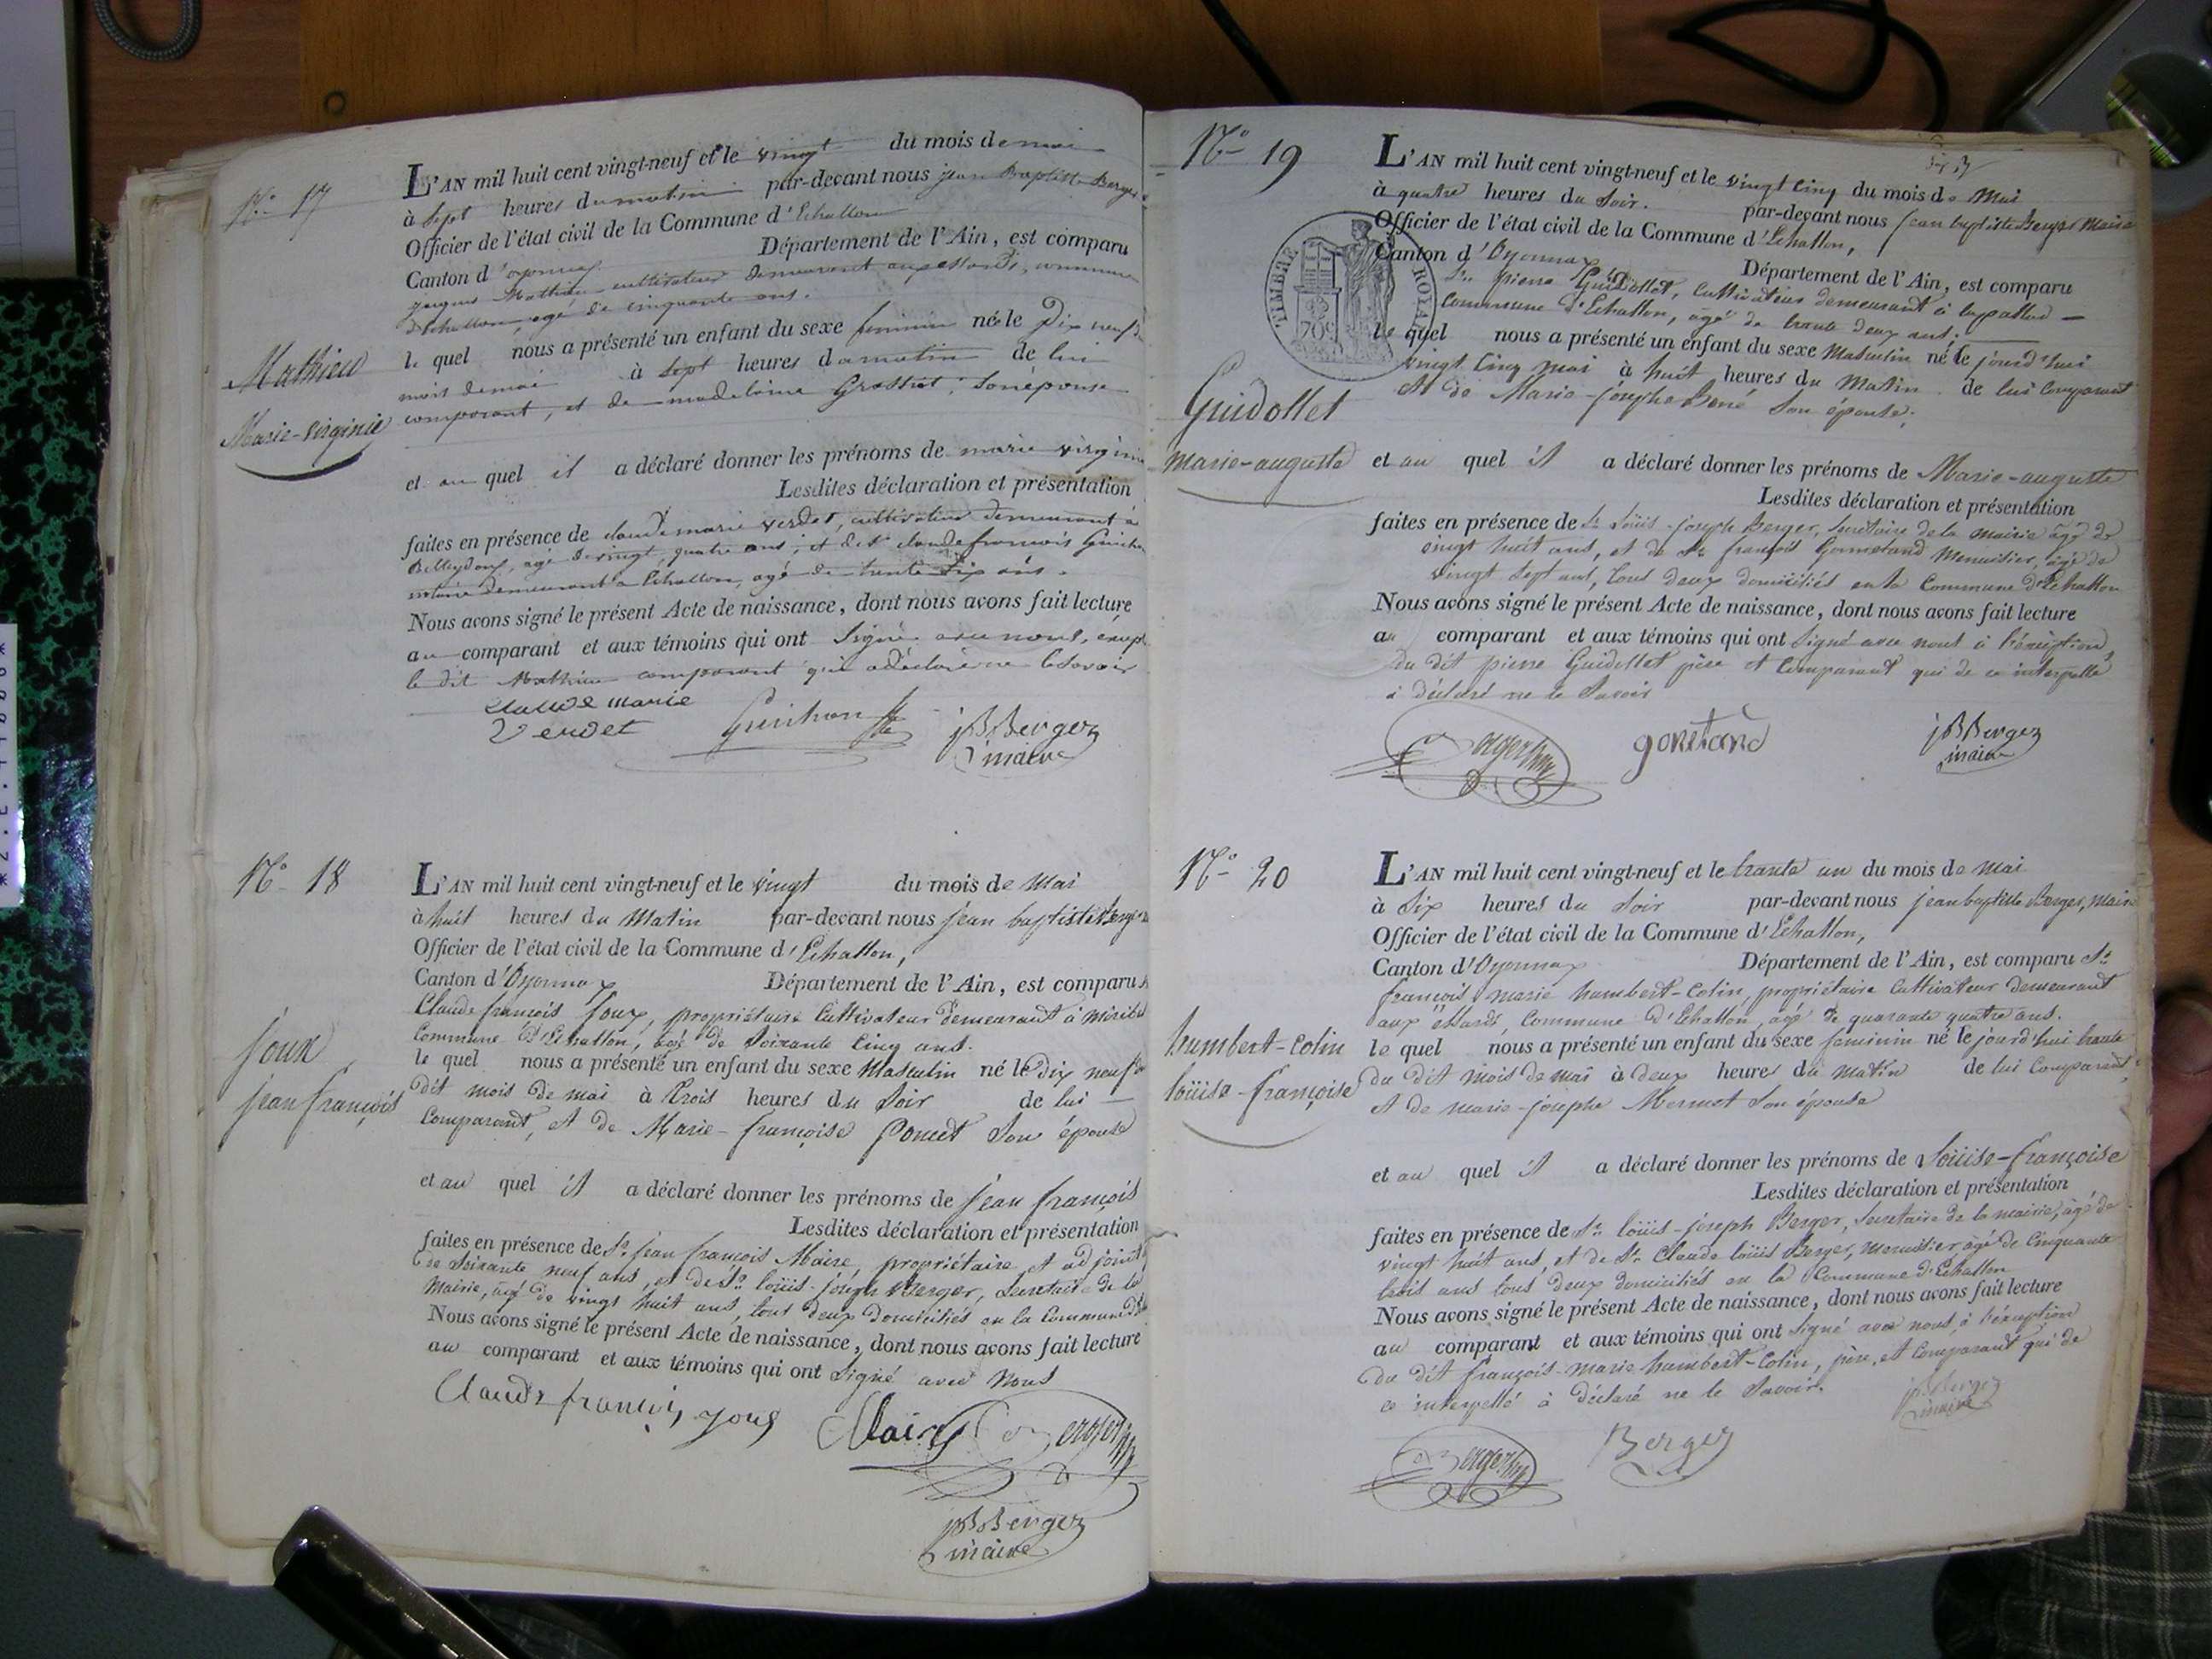 N° 17
Mathieu
Marie-Virginie
L'AN mil huit cent vingt-neuf et le vingt du mois de mai
à sept heures du matin par-devant nous jean Baptiste Berger
Officier de l'état civil de la Commune d'Echallon
Canton d'oyonnax Département de l'Ain, est comparu
jacques Mathieu cultivateur demeurant aux essards, commune
d'Echallon, agé de cinquante ans.
le quel nous a présenté un enfant du sexe feminin né le Dix neuf du
mois de mai à sept heures du matin de lui
comparant, et de madelaine Grossiat, son épouse
et au quel il a déclaré donner les prénoms de marie virginie
Lesdites déclaration et présentation
faites en présence de claude marie verdet, cultivateur demeurant à
Belleydoux, agé de vingt quatre ans; et de sr claude francois Guichon
demeurant a Echallon, agé de trente six ans.
Nous avons signé le présent Acte de naissance, dont nous avons fait lecture
au comparant et aux témoins qui ont signé avec nous, excepté
le dit Mathieu comparant qui a déclaré ne le savoir
claude marie
Verdet Guichon jBBerger
maire
N° 18
Joux
jean françois
L'AN mil huit cent vingt-neuf et le vingt du mois de Mai
à huit heures du Matin par-devant nous jean baptiste Berger
Officier de l'état civil de la Commune d'Echallon,
Canton d'Oyonnax Département de l'Ain, est comparu
Claude françois Joux, propriétaire Cultivateur demeurant à
Commune d'Echallon, âgé de Soixante Cinq ans.
le quel nous a présenté un enfant du sexe Masculin né le Dix neuf du
dit mois de mai à trois heures du Soir de lui
Comparant, et de Marie-françoise Poncet Son épouse
et au quel il a déclaré donner les prénoms de Jean françois
Lesdites déclaration et présentation
faites en présence de Sr. jean françois Maire, propriétaire et adjoint
de Soixante neuf ans, et de Sr. loüis-joseph Berger, Secretaire de la
Mairie, âgé de vingt huit ans, tous deux domiciliés en la Commune
Nous avons signé le présent Acte de naissance, dont nous avons fait lecture
au comparant et aux témoins qui ont Signé avec Nous
Claude francois joux Maire Berger
jBBerger
maire
N° 19
Guidollet
marie-auguste
L'AN mil huit cent vingt-neuf et le vingt Cinq du mois de Mai
à quatre heures du Soir. par-devant nous jean baptiste Berger Maire
Officier de l'état civil de la Commune d'Echallon,
Canton d'Oyonnax Département de l'Ain, est comparu
Sr. pierre Guidollet, Cultivateur demeurant à
Commune d'Echallon, âgé de trente deux ans.
le quel nous a présenté un enfant du sexe Masculin né le jourd'hui
vingt Cinq mai à huit heures du Matin de lui Comparant
et de Marie-josephe Bené Son épouse.
et au quel il a déclaré donner les prénoms de Marie-auguste
Lesdites déclaration et présentation
faites en présence de Sr. Loüis-joseph Berger, Secretaire de la mairie âgé de
vingt huit ans, et de Sr. françois Gonnetand Menuisier, âgé de
vingt Sept ans, tous deux domiciliés en la Commune d'Echallon
Nous avons signé le présent Acte de naissance, dont nous avons fait lecture
au comparant et aux témoins qui ont Signé avec nous à l'éxception
du dit pierre Guidollet père et Comparant qui de ce interpellé
à déclaré ne le Savoir
TIMBRE ROYAL
70c
Berger gonetand jBBerger
maire
N° 20
humbert-colin
loüise-françoise
L'AN mil huit cent vingt-neuf et le trente un du mois de mai
à Six heures du Soir par-devant nous jean baptiste Berger, Maire
Officier de l'état civil de la Commune d'Echallon,
Canton d'Oyonnax Département de l'Ain, est comparu Sr.
françois marie humbert-Colin, propriétaire Cultivateur demeurant
aux essards, Commune d'Echallon, âgé de quarante quatre ans.
le quel nous a présenté un enfant du sexe feminin né le jourd'hui trente
du dit mois de mai à deux heures du matin de lui Comparant
et de marie-josephe Mermet Son épouse
et au quel il a déclaré donner les prénoms de Loüise-françoise
Lesdites déclaration et présentation
faites en présence de Sr. loüis-joseph Berger, Secretaire de la mairie, âgé de
vingt huit ans, et de Sr. Claude loüis Berger, Menuisier âgé de Cinquante
trois ans tous deux domiciliés en la Commune d'Echallon
Nous avons signé le présent Acte de naissance, dont nous avons fait lecture
au comparant et aux témoins qui ont Signé avec nous à l'éxception
du dit françois-marie humbert-Colin, père, et Comparant qui de
ce interpellé à déclaré ne le Savoir.
Berger Berger jBBerger
maire